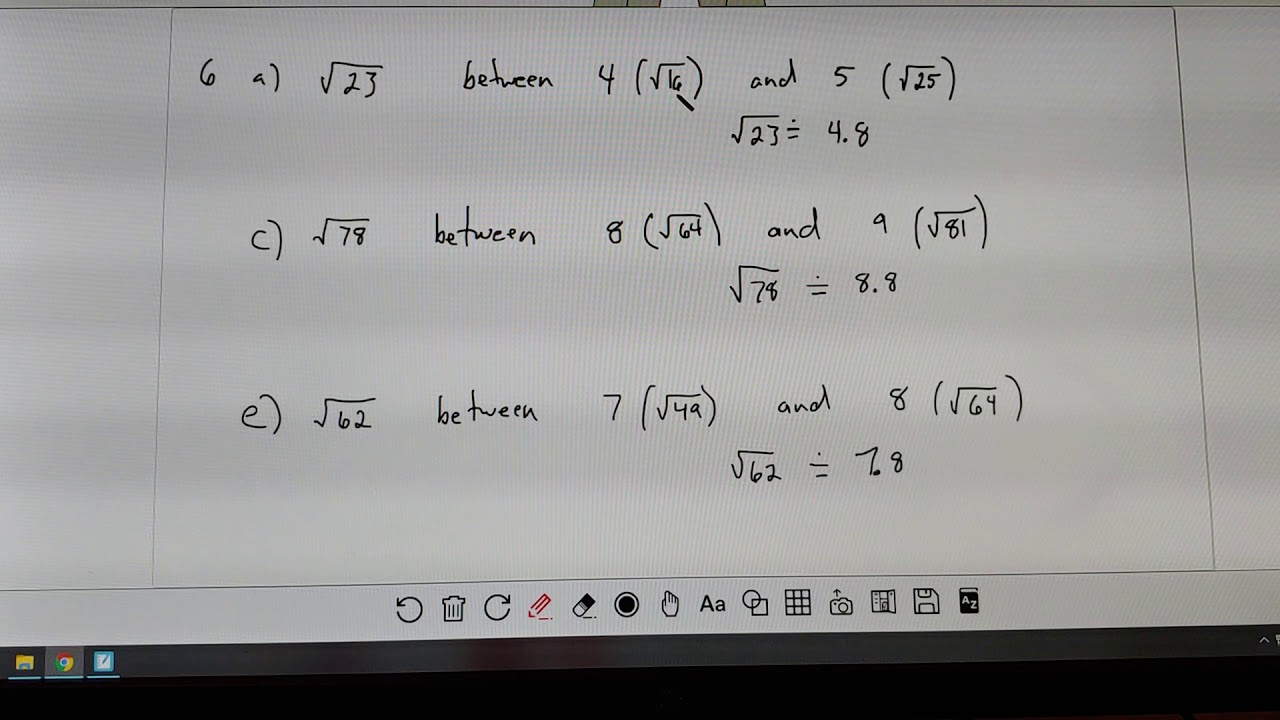 6 a) √23 between 4 (√16) and 5 (√25)
√23 ≐ 4.8
c) √78 between 8 (√64) and 9 (√81)
√78 ≐ 8.8
e) √62 between 7 (√49) and 8 (√64)
√62 ≐ 7.8
Aa
AZ